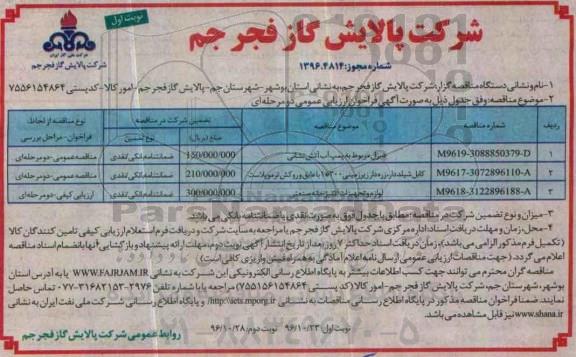 نوبت اول
شرکت پالایش گاز فجر جم
شرکت ملی گاز ایران
شرکت پالایش گاز فجر جم
شماره مجوز: ۱۳۹۶.۴۸۱۴
۱- نام و نشانی دستگاه مناقصه گزار: شرکت پالایش گاز فجر جم، به نشانی استان بوشهر - شهرستان جم - پالایش گاز فجر جم - امور کالا - کدپستی ۷۵۵۶۱۵۴۸۶۴
۲- موضوع مناقصه: وفق جدول ذیل به صورت آگهی فراخوان ارزیابی عمومی دو مرحله‌ای
ردیف شماره مناقصه موضوع مناقصه تضمین شرکت در مناقصه مبلغ (ریال) نوع تضمین نوع مناقصه از لحاظ فراخوان - مراحل بررسی
۱ M9619-3088850379-D دیزل مربوط به پمپ آب آتش نشانی 150/000/000 ضمانتنامه بانکی / نقدی مناقصه عمومی - دو مرحله‌ای
۲ M9617-3072896110-A کابل شیلددار، زره دار زیرزمینی ۱۵۳۰۰ با عایق و روکش ترموپلاست 210/000/000 ضمانتنامه بانکی / نقدی مناقصه عمومی - دو مرحله‌ای
۳ M9618-3122896188-A لوازم و تجهیزات آشپزخانه صنعتی 300/000/000 ضمانتنامه بانکی / نقدی ارزیابی کیفی - دو مرحله‌ای
۳- میزان و نوع تضمین شرکت در مناقصه: مطابق با جدول فوق به صورت نقدی یا ضمانتنامه بانکی می باشد
۴- محل، زمان و مهلت دریافت اسناد: اداره مرکزی شرکت پالایش گاز فجر جم با مراجعه به سایت شرکت و دریافت فرم استعلام ارزیابی کیفی تامین کنندگان کالا
(تکمیل فرم مذکور الزامی می باشد)، زمان دریافت اسناد حداکثر ۷ روز بعد از تاریخ انتشار آگهی نوبت دوم، مهلت ارائه پیشنهاد و بازگشایی آنها با انضمام اسناد مناقصه
اعلام می گردد. (جهت مناقصات ارزیابی عمومی ارسال نامه اعلام آمادگی به همراه فیش واریزی کافی است)
مناقصه گران محترم می توانند جهت کسب اطلاعات بیشتر به پایگاه اطلاع رسانی الکترونیکی این شرکت به نشانی WWW.FAJRJAM.IR یا به آدرس استان
بوشهر، شهرستان جم، شرکت پالایش گاز فجر جم - امور کالا (کد پستی ۷۵۵۶۱۵۴۸۶۴) مراجعه یا با شماره تلفن ۲۹۷۶-۳۱۶۸۲۱۵۳-۰۷۷ تماس حاصل
نمایند. ضمنا فراخوان مناقصه مذکور در پایگاه اطلاع رسانی مناقصات به نشانی http://iets.mporg.ir و پایگاه اطلاع رسانی شرکت ملی نفت ایران به نشانی
www.shana.ir نیز قابل مشاهده می باشد.
نوبت اول: ۹۶/۱۰/۲۳ نوبت دوم: ۹۶/۱۰/۲۸
روابط عمومی شرکت پالایش گاز فجر جم